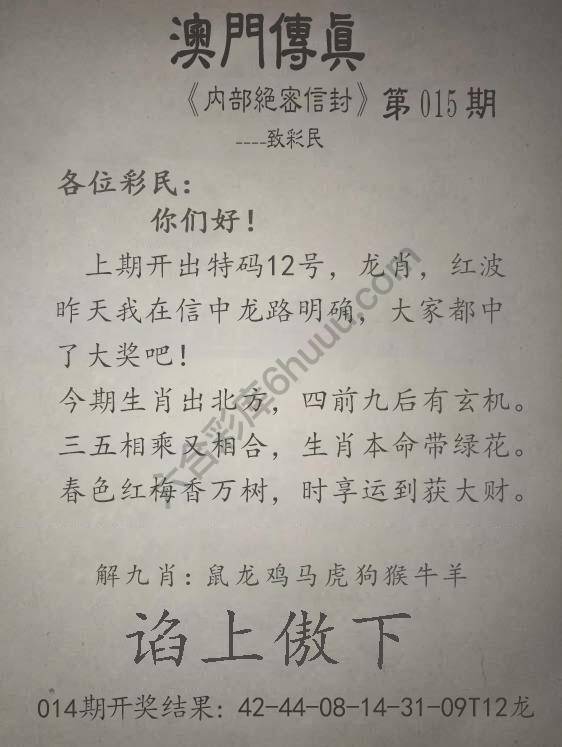 澳門傳眞
《内部絕密信封》第015期
----致彩民
各位彩民：
你们好！
上期开出特码12号，龙肖，红波
昨天我在信中龙路明确，大家都中
了大奖吧！
今期生肖出北方，四前九后有玄机。
三五相乘又相合，生肖本命带绿花。
春色红梅香万树，时享运到获大财。
解九肖：鼠龙鸡马虎狗猴牛羊
谄上傲下
014期开奖结果：42-44-08-14-31-09T12龙
六合彩库6huuu.com